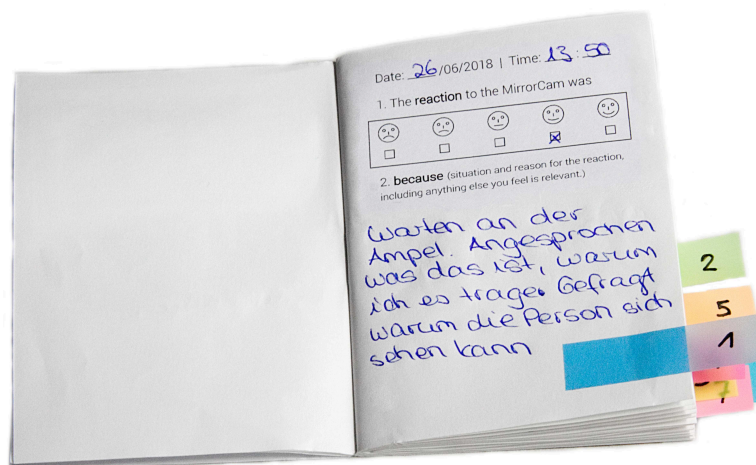 Date: 26/06/2018 | Time: 13:50
1. The reaction to the MirrorCam was
2. because (situation and reason for the reaction,
including anything else you feel is relevant.)
Warten an der
Ampel. Angesprochen
was das ist, warum
ich es trage. Gefragt
warum die Person sich
sehen kann
2
5
1